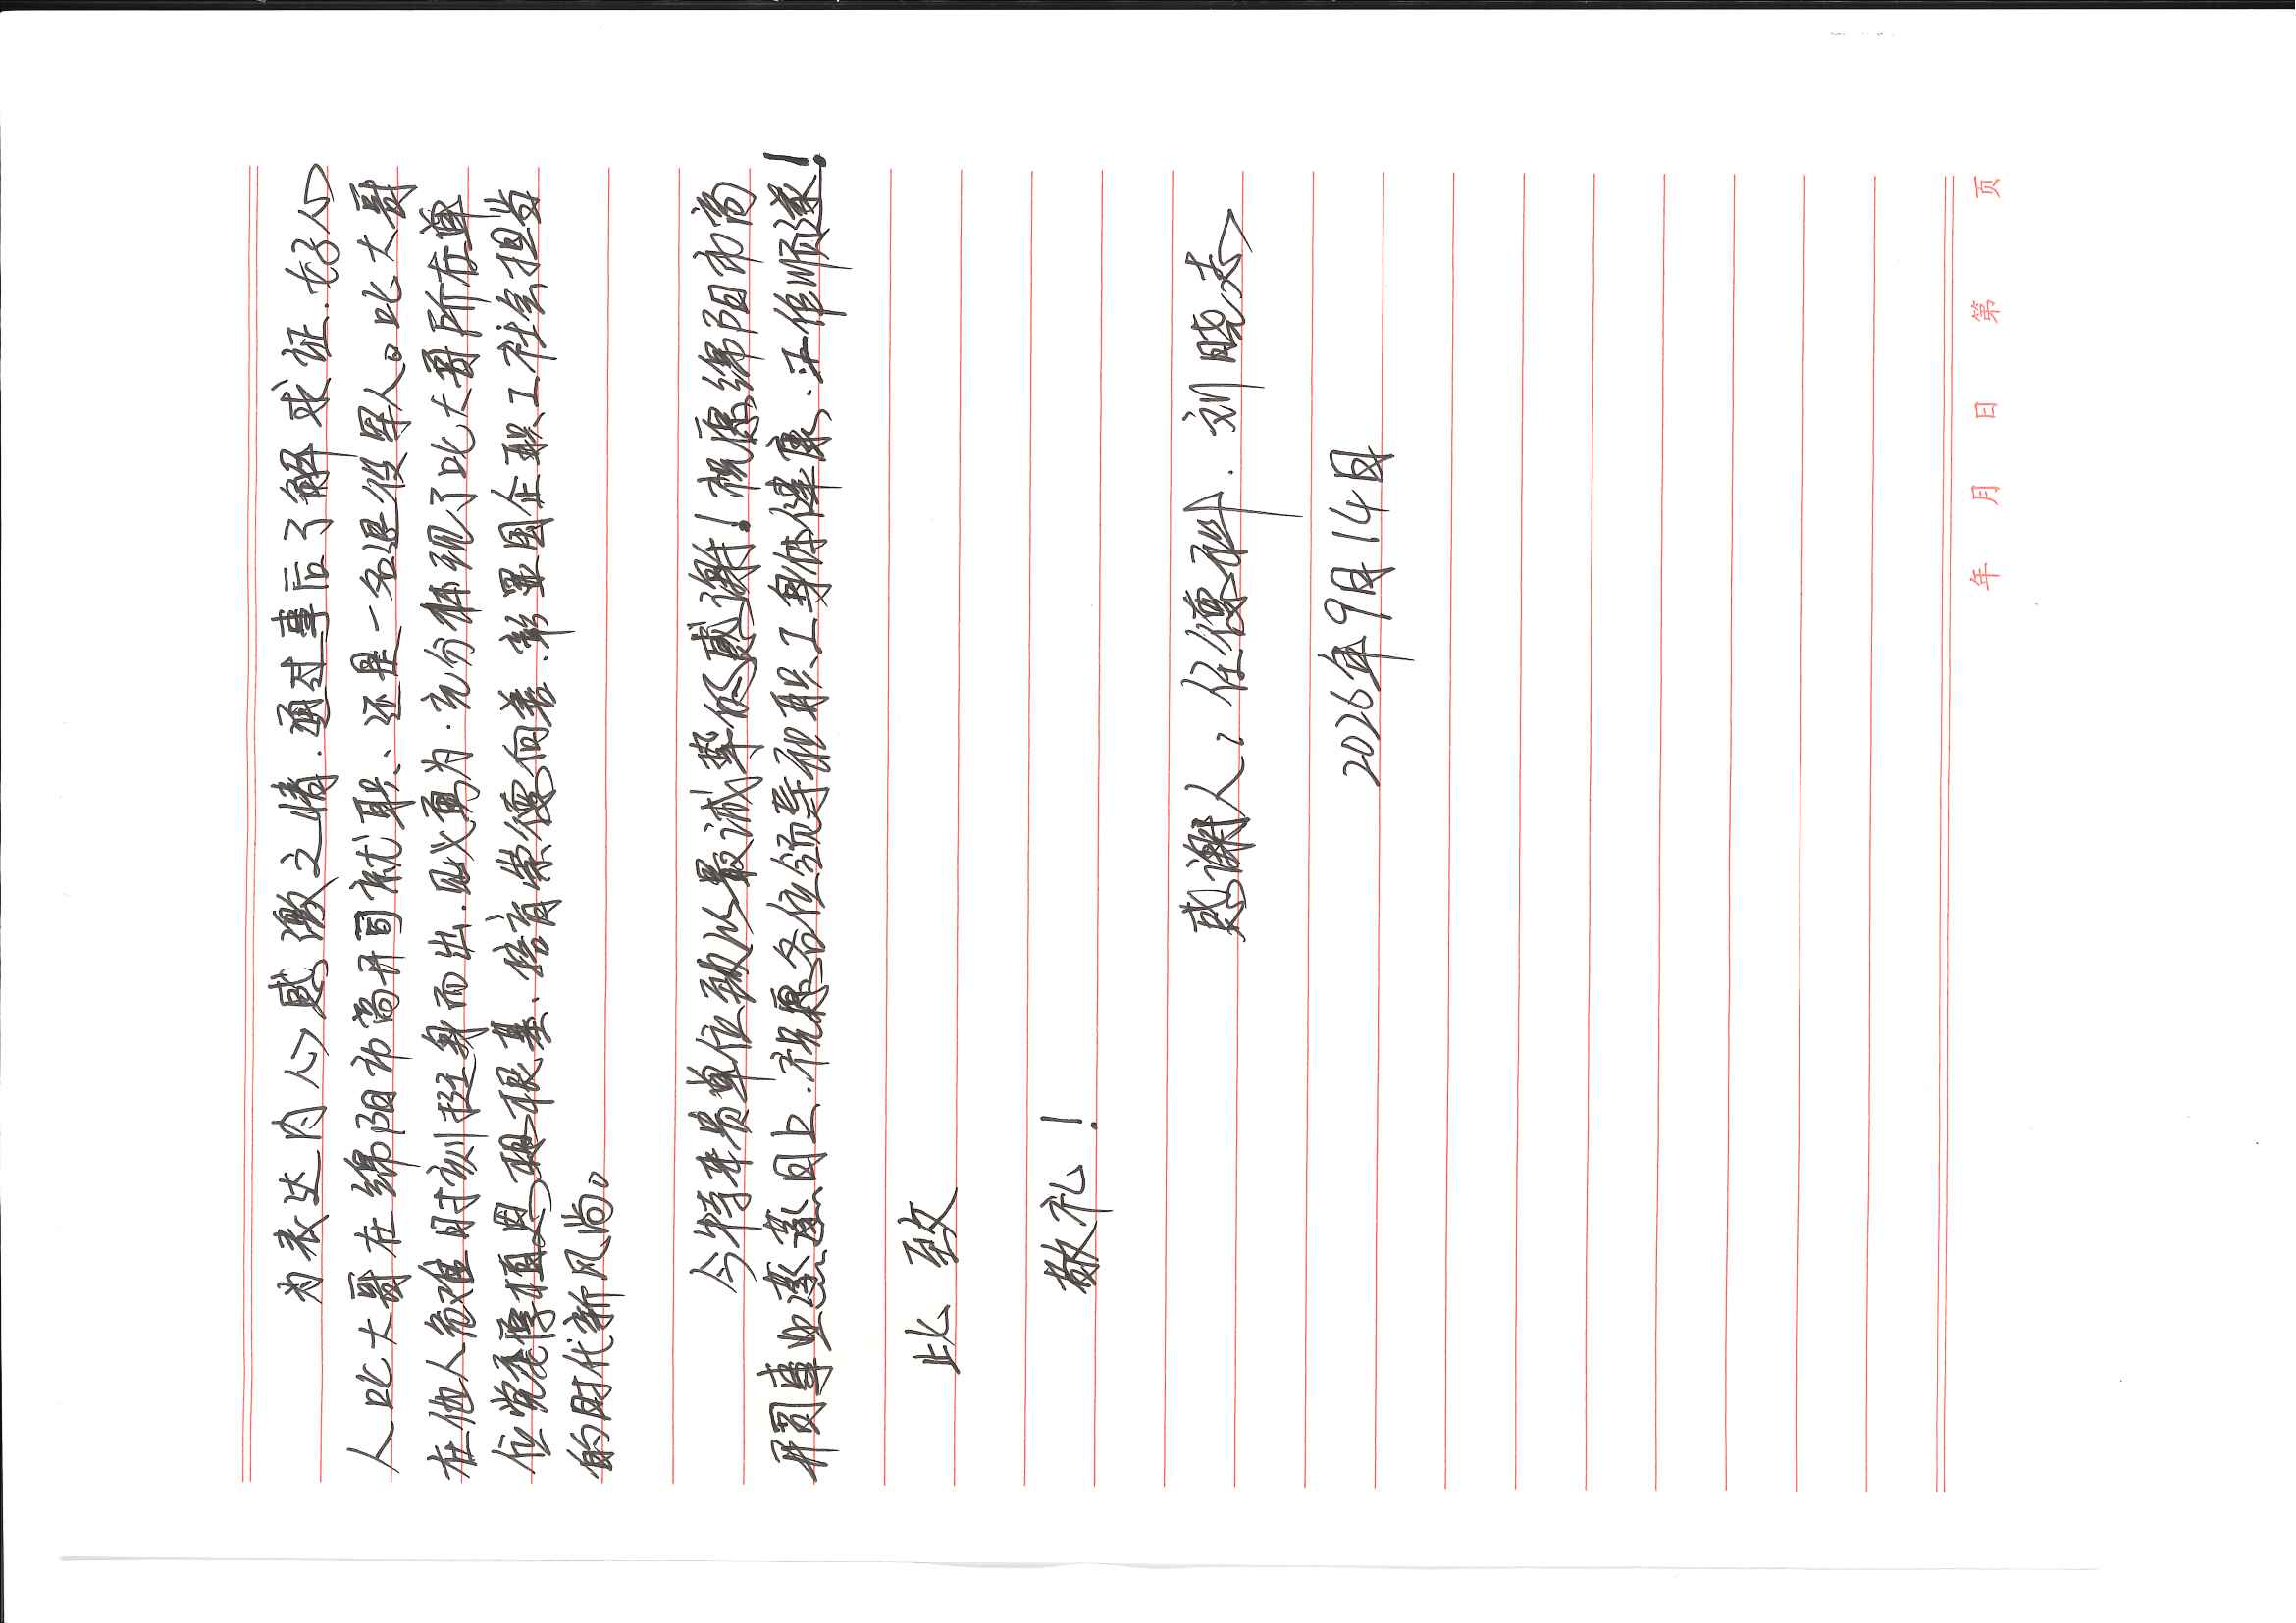 为表达内心感激之情.通过事后了解求证.好心
人此大哥在绵阳市商开司就职、还是一名退役军人。此大哥
在他人危难时刻挺身而出.见义勇为.充分体现了此大哥所在单
位党委厚植思想根基、培育崇德向善.彰显国企职工社会担当
的时代新风尚。
今特来贵单位致以最诚挚的感谢！祝愿绵阳市商
开司事业蒸蒸日上.祝愿各位领导和职工身体健康.工作顺遂！
此致
敬礼！
感谢人：任德 .刘晓
2026年9月14日
年 月 日 第 页